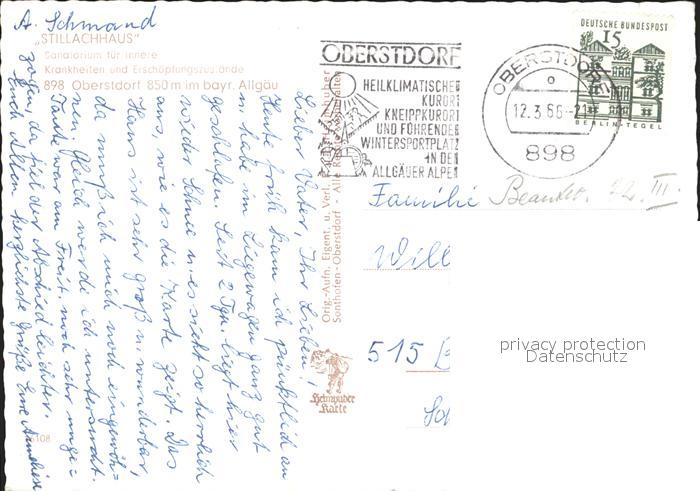 A. Schmand
„STILLACHHAUS"
Sanatorium für innere
Krankheiten und Erschöpfungszustände
898 Oberstdorf 850 m im bayr. Allgäu
Lieber Vater, Ihr Lieben!
Heute früh kam ich pünktlich an
u. habe im Liegewagen ganz gut
geschlafen. Seit 2 Tgn. liegt hier
wieder Schnee u. es sieht so herrlich
aus, wie es die Karte zeigt. Das
Haus ist sehr groß u. wunderbar,
da muß ich mich noch eingewöh=
nen. Gleich werde ich untersucht.
Tante war am Freit. noch sehr unge=
zogen, da fiel der Abschied leichter.
Euch allen herzlichste Grüße Eure Anneliese
6108
Orig.-Aufn. Eigent. u. Verl.
Sonthofen-Oberstdorf - Alle Rechte vorbehalten
Heimhuber
Karte
OBERSTDORF
HEILKLIMATISCHER
KURORT
KNEIPPKURORT
UND FÜHRENDER
WINTERSPORTPLATZ
IN DEN
ALLGÄUER ALPEN
OBERSTDORF
12.3.66-21
898
DEUTSCHE BUNDESPOST
15
BERLIN-TEGEL
Familie
22. III.
Will
515 B
privacy protection
Datenschutz